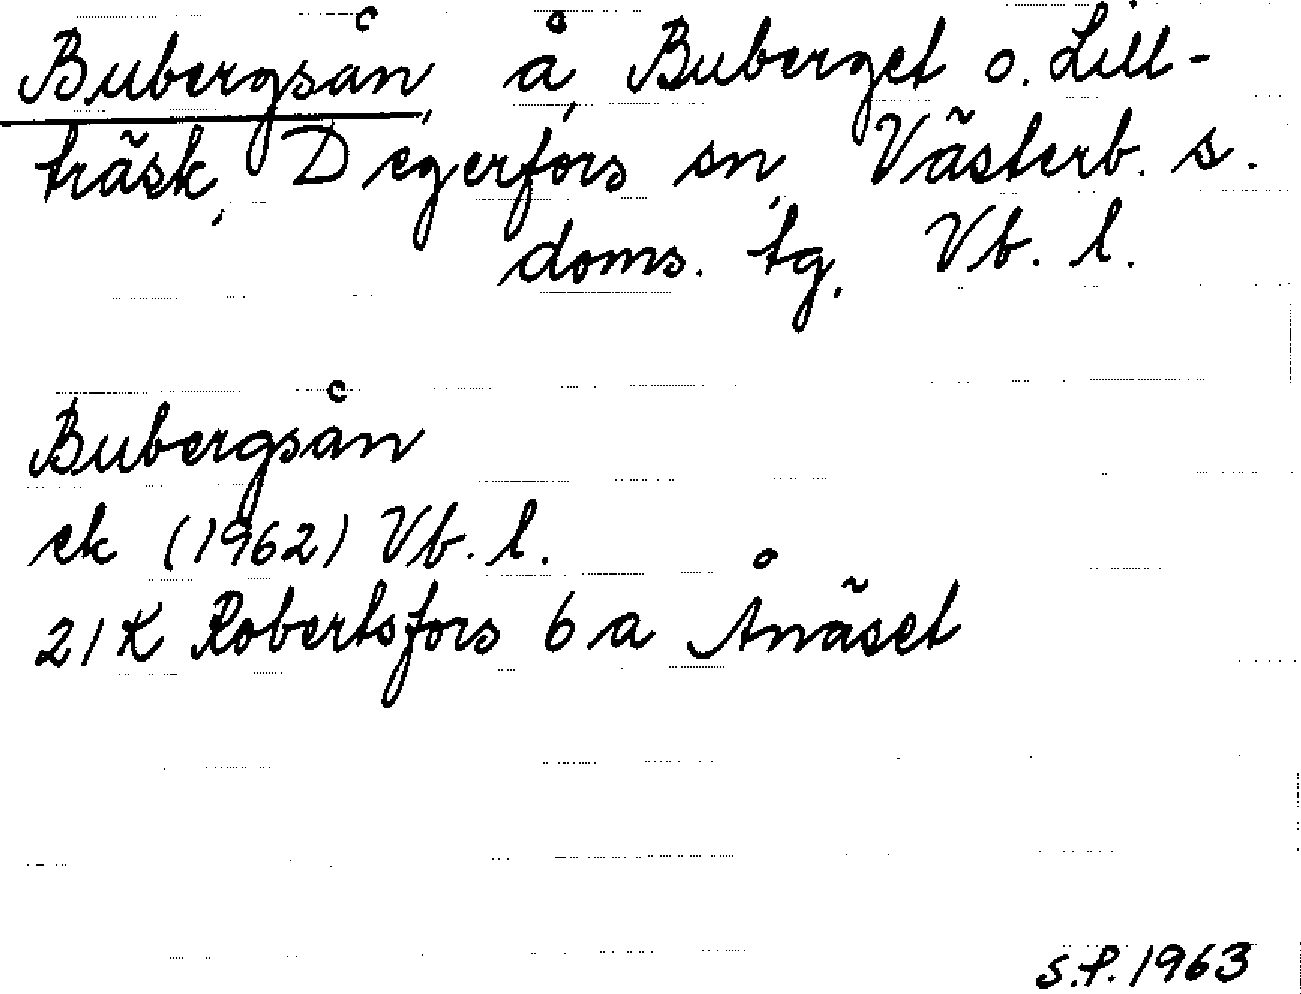 Bubergsån, å, Buberget o. Lill-
träsk, Degerfors sn, Västerb. s.
doms. tg. Vb. l.
Bubergsån
ek (1962) Vb. l.
21K Robertsfors 6a Ånäset
S.P. 1963